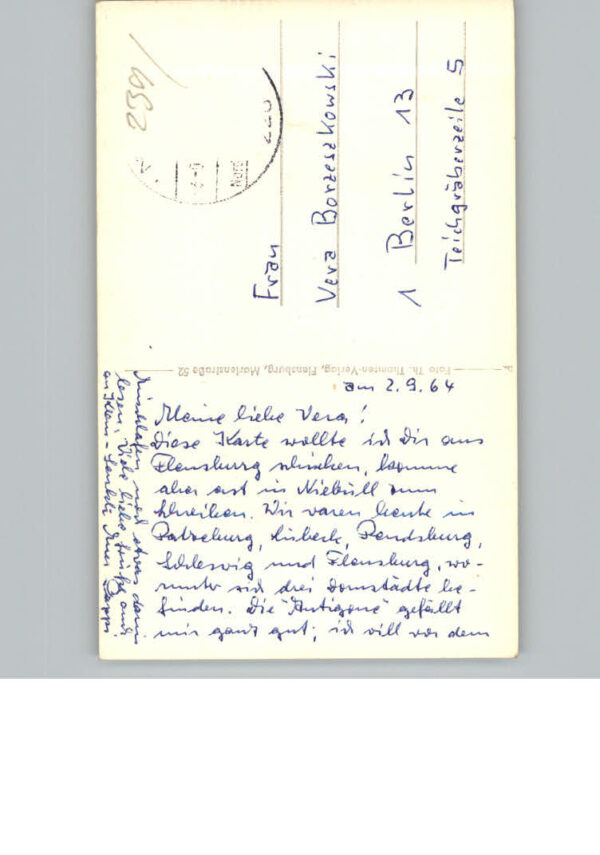 am 2.9.64
Meine liebe Vera!
Diese Karte wollte ich Dir aus
Flensburg schicken, komme
aber erst in Niebüll zum
Schreiben. Wir waren heute in
Ratzeburg, Lübeck, Rendsburg,
Schleswig und Flensburg, wo-
runter sich drei Domstädte be-
finden. Die "Antigone" gefällt
mir ganz gut; ich will vor dem
Einschlafen noch etwas darin
lesen. Viele liebe Grüße auch
an Klein-
Foto Th. Thomsen-Verlag, Flensburg, Martenstraße 52
Frau
Vera Borzeszkowski
1 Berlin 13
Teichgräberzeile 5
Nord